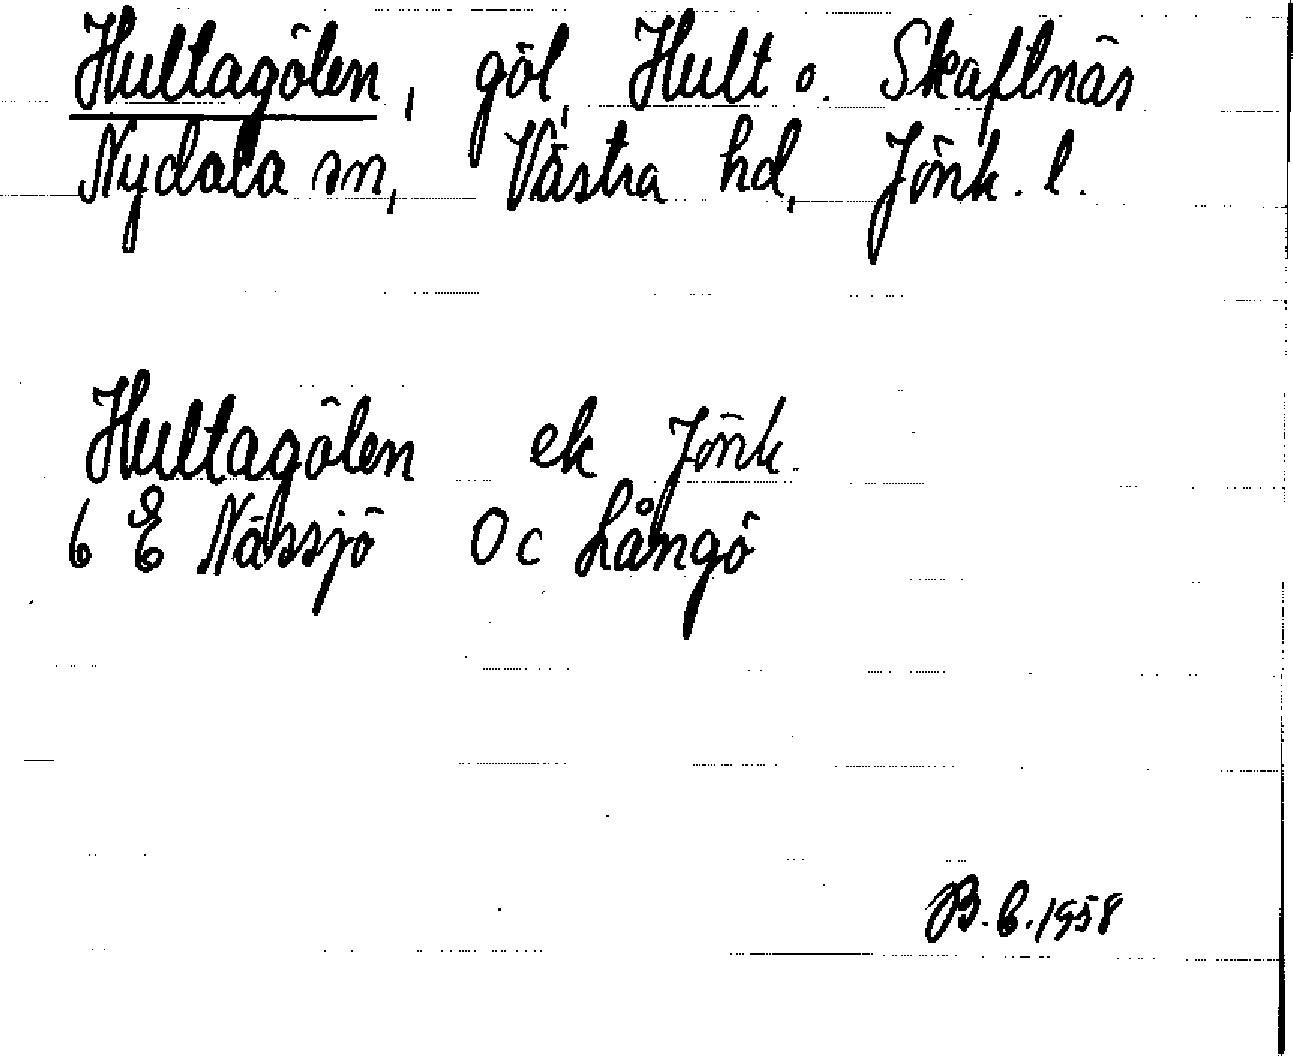 Hultagölen, göl, Hult o. Skaftnäs
Nydala sn, Västra hd, Jönk. l.
Hultagölen ek Jönk.
6 E Nässjö 0 c Långö
B.C.1958